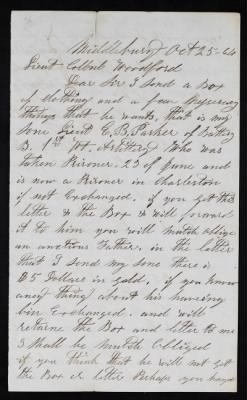 Middlebury Oct 25-64
Lieut Colonel Woodford
Dear Sir I Send a Box
of clothing and a few Nessesary
things that he wants, that is my
Sone Lieut C. B. Parker of Battery
B. 1st Vt. Artillery Who was
taken Prisoner. 23 of June and
is now a Prisoner in Charleston
if not Exchanged. if you get the
letter & the Box & will forward
it to him you will mutch oblige
an anctious Father. in the letter
that I Send my Sone there is
$5 Dollars in gold. if you know
aney thing about his haveing
bin Exchanged. and will
returne the Box and letter to me
I Shall be mutch Obliged
if you think that he will not get
the Box & letter Perhaps you have